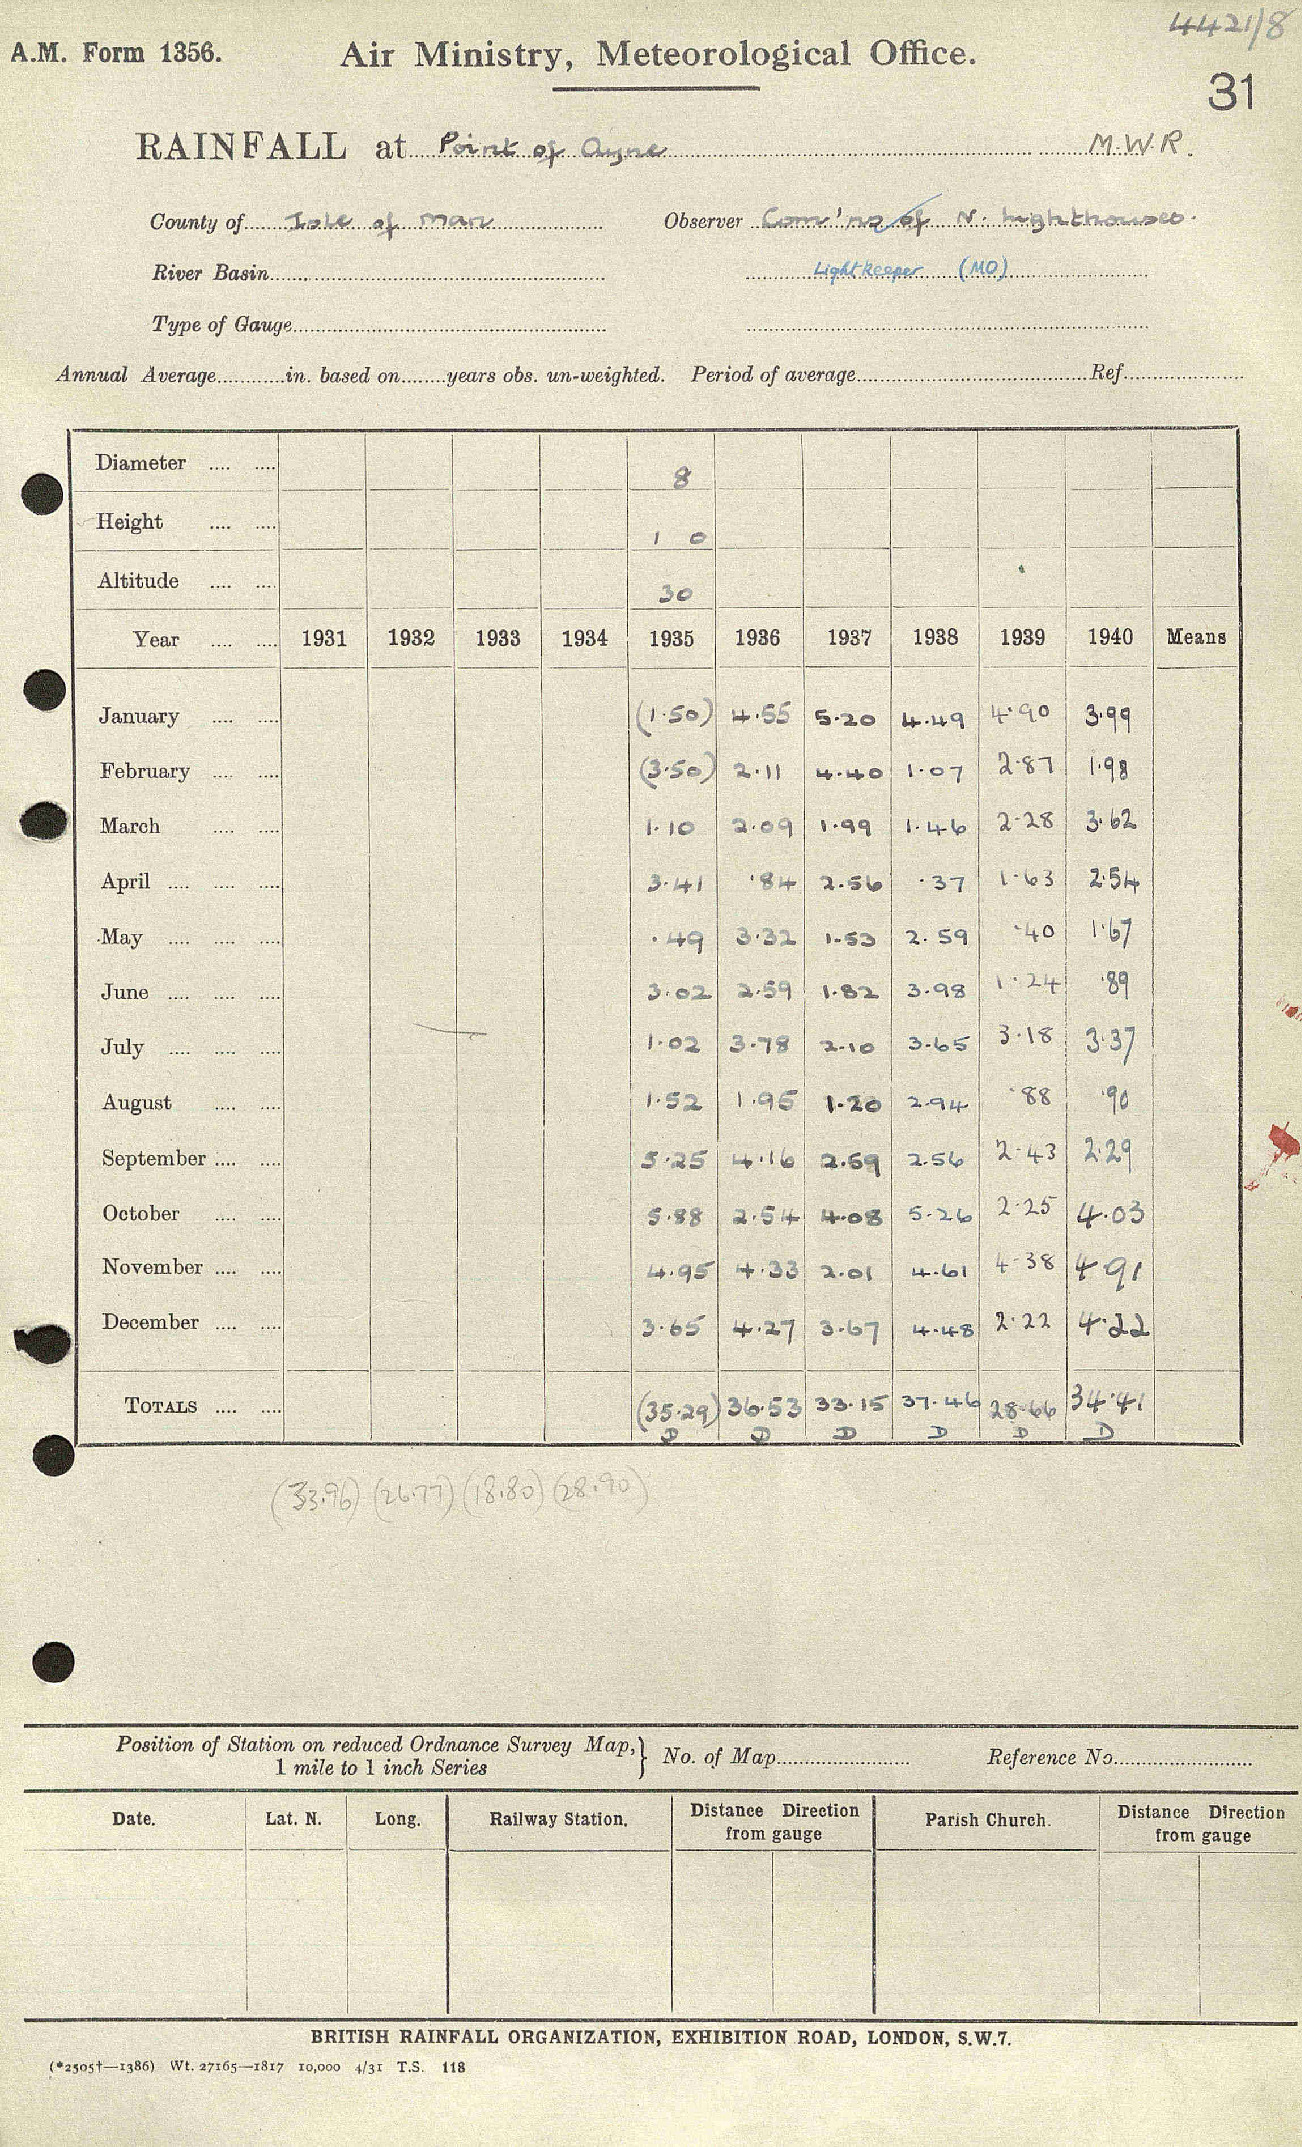 4421/8
A.M. Form 1356. Air Ministry, Meteorological Office.
31
RAINFALL at Point of Ayre M.W.R.
County of Isle of Man Observer Com'ns of N. Lighthouses.
River Basin Lightkeeper (MO)
Type of Gauge
Annual Average in. based on years obs. un-weighted. Period of average Ref
Diameter .... .... 8
Height .... .... 1 0
Altitude .... .... 30
Year .... .... 1931 1932 1933 1934 1935 1936 1937 1938 1939 1940 Means
January .... .... (1.50) 4.55 5.20 4.49 4.90 3.99
February .... .... (3.50) 2.11 4.40 1.07 2.87 1.98
March .... .... 1.10 2.09 1.99 1.46 2.28 3.62
April .... .... .... 3.41 .84 2.56 .37 1.63 2.54
May .... .... .... .49 3.32 1.53 2.59 .40 1.67
June .... .... .... 3.02 2.59 1.82 3.98 1.24 .89
July .... .... .... 1.02 3.78 2.10 3.65 3.18 3.37
August .... .... 1.52 1.95 1.20 2.94 .88 .90
September .... .... 5.25 4.16 2.59 2.56 2.43 2.29
October .... .... 5.88 2.54 4.08 5.26 2.25 4.03
November .... .... 4.95 4.33 2.01 4.61 4.38 4.91
December .... .... 3.65 4.27 3.67 4.48 2.22 4.22
TOTALS .... .... (35.29) 36.53 33.15 37.46 28.66 34.41
D D D D D D
(33.96) (26.77) (18.80) (28.90)
Position of Station on reduced Ordnance Survey Map,} No. of Map Reference No.
1 mile to 1 inch Series
Date. Lat. N. Long. Railway Station. Distance Direction from gauge Parish Church. Distance Direction from gauge
BRITISH RAINFALL ORGANIZATION, EXHIBITION ROAD, LONDON, S.W.7.
(*2505†—1386) Wt. 27165—1817 10,000 4/31 T.S. 118